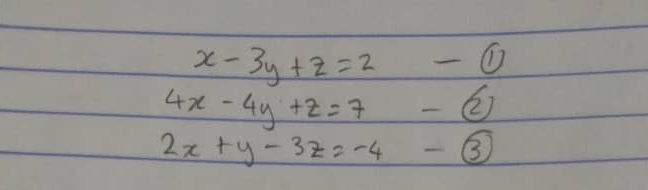 x - 3y + z = 2 — ①
4x - 4y + z = 7 — ②
2x + y - 3z = -4 — ③